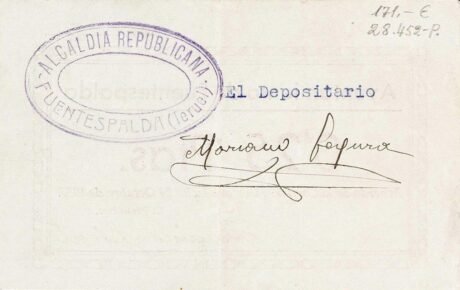 171.-€
28.452-P.
ALCALDIA REPUBLICANA
FUENTESPALDA (Teruel)
El Depositario
Mariano Segura